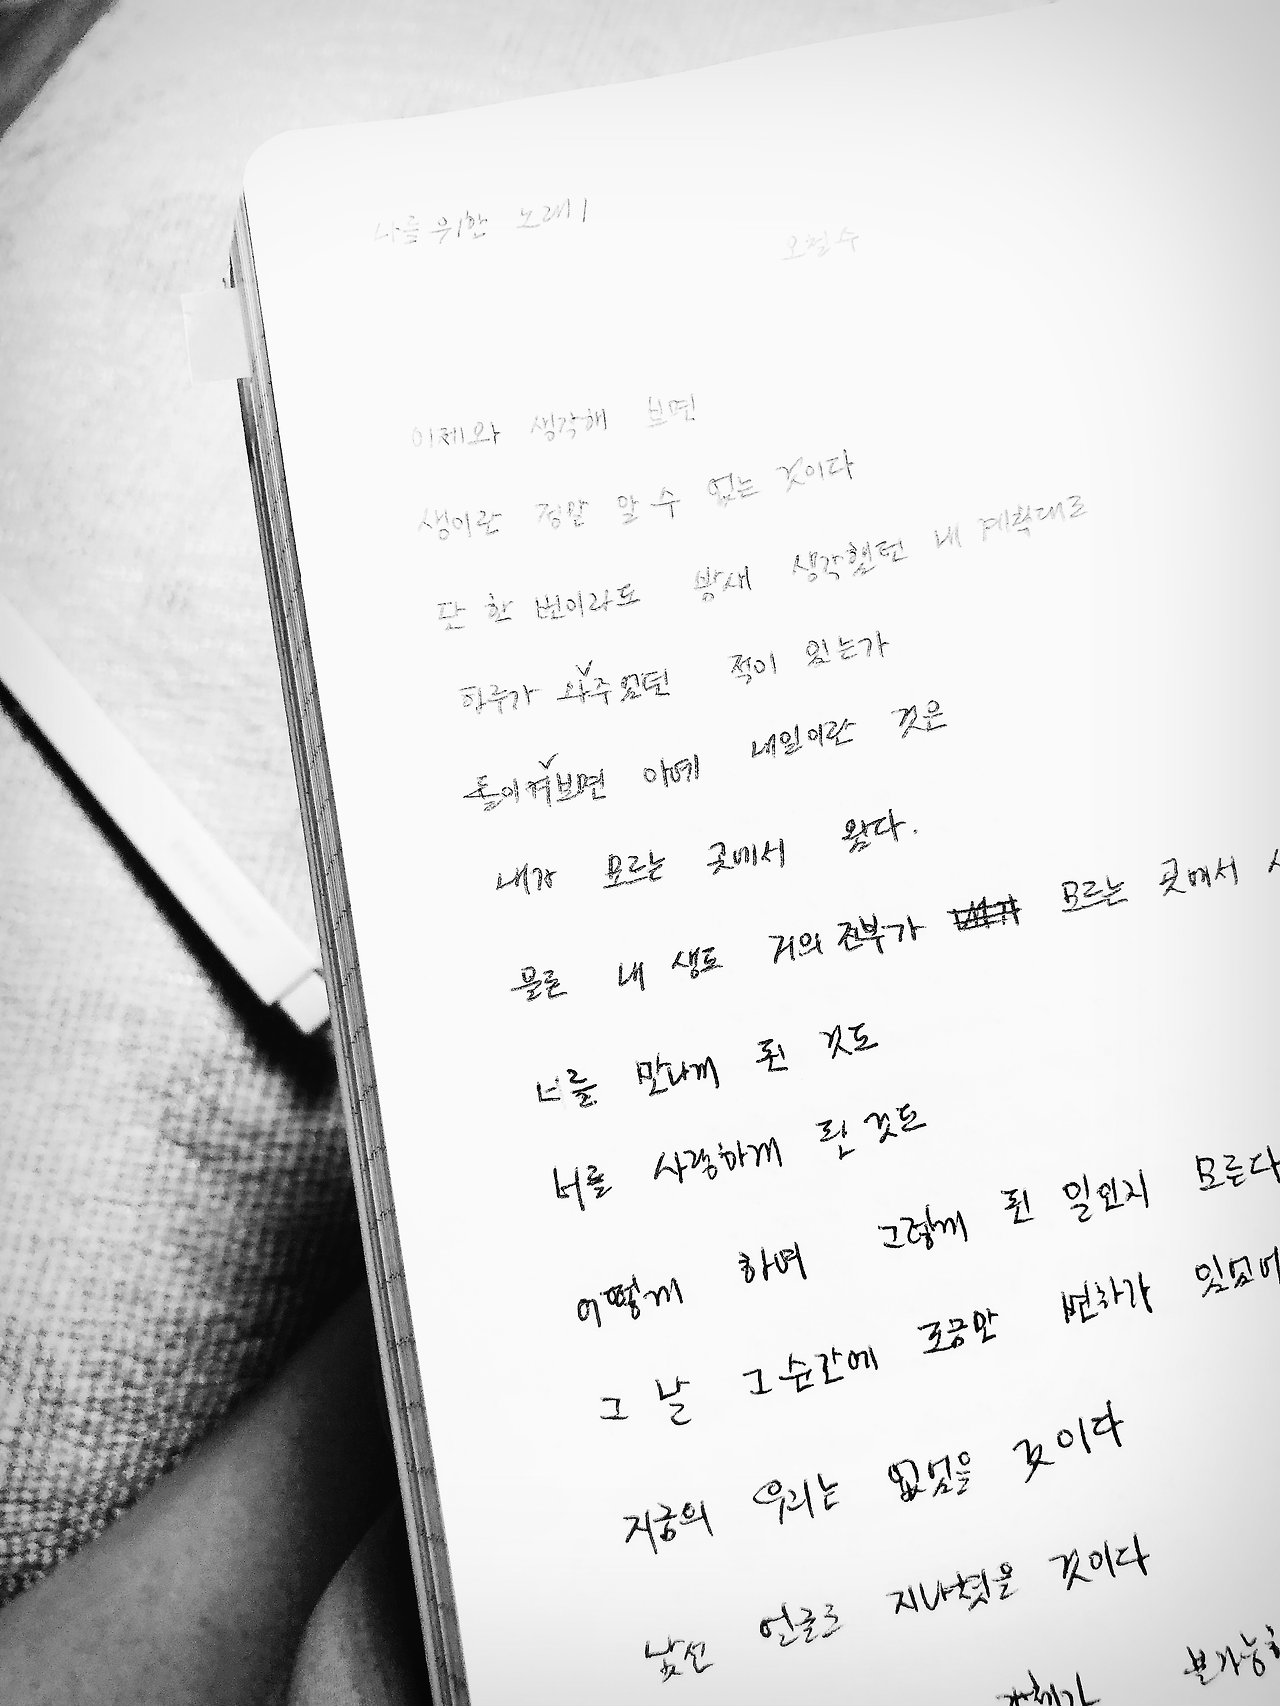 나를 위한 노래 1
오철수
이제와 생각해 보면
생이란 정말 알 수 없는 것이다
단 한 번이라도 밤새 생각했던 내 계획대로
하루가 와주었던 적이 있는가
돌이켜보면 아예 내일이란 것은
내가 모르는 곳에서 왔다.
물론 내 생도 거의 전부가 모르는 곳에서
너를 만나게 된 것도
너를 사랑하게 된 것도
어떻게 하여 그렇게 된 일인지 모른다
그 날 그 순간에 조금만 변화가 있었어
지금의 우리는 없었을 것이다
낯선 얼굴로 지나쳤을 것이다